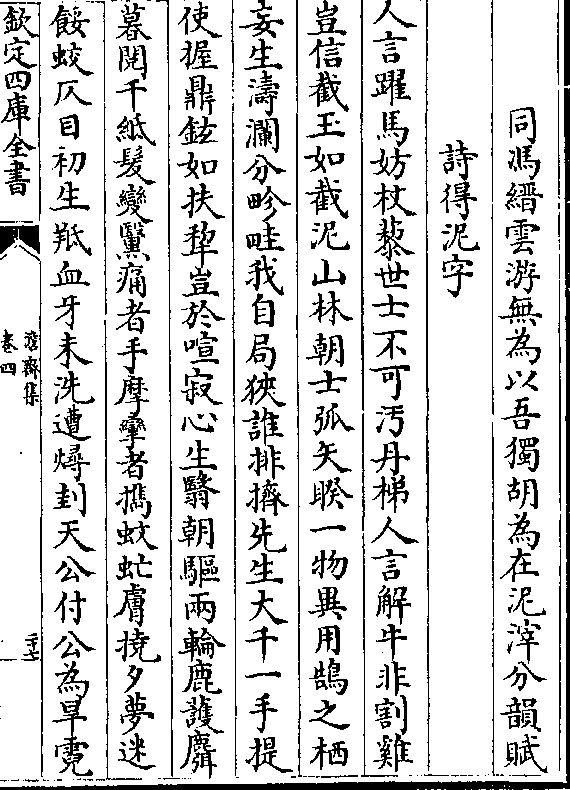 同馮縉雲游無為以吾獨胡為在泥滓分韻賦
詩得泥字
人言躍馬妨杖藜世士不可汚丹梯人言解牛非割雞
豈信截玉如截泥山林朝士弧矢睽一物異用鵠之栖
妄生濤瀾分畛畦我自局狹誰排擠先生大千一手提
使握鼎鉉如扶犂豈於喧寂心生翳朝驅兩輪鹿護麛
暮閱千紙髮變黳痛者手摩攣者攜蚊虻膚撓夕夢迷
餒蛟仄目初生羝血牙未洗遭燖刲天公付公為旱霓
欽定四庫全書
澹齋集
卷四
二十七